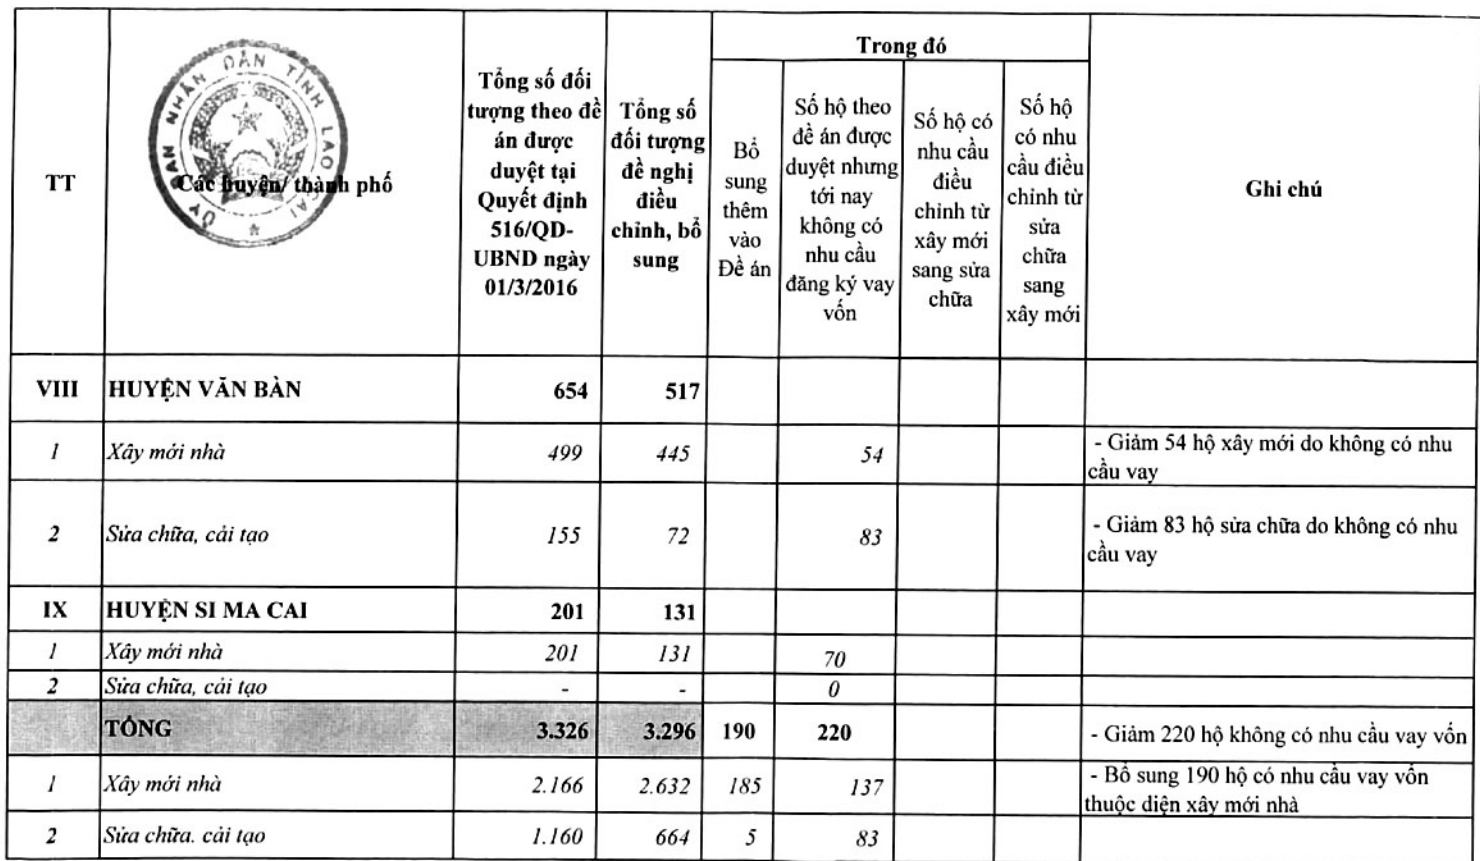 TT
ỦY BAN NHÂN DÂN TỈNH LÀO CAI
Các huyện/ thành phố
Tổng số đối
tượng theo đề
án được
duyệt tại
Quyết định
516/QD-
UBND ngày
01/3/2016
Tổng số
đối tượng
đề nghị
điều
chỉnh, bổ
sung
Trong đó
Bổ
sung
thêm
vào
Đề án
Số hộ theo
đề án được
duyệt nhưng
tới nay
không có
nhu cầu
đăng ký vay
vốn
Số hộ có
nhu cầu
điều
chỉnh từ
xây mới
sang sửa
chữa
Số hộ
có nhu
cầu điều
chỉnh từ
sửa
chữa
sang
xây mới
Ghi chú
VIII HUYỆN VĂN BÀN 654 517
1 Xây mới nhà 499 445 54 - Giảm 54 hộ xây mới do không có nhu
cầu vay
2 Sửa chữa, cải tạo 155 72 83 - Giảm 83 hộ sửa chữa do không có nhu
cầu vay
IX HUYỆN SI MA CAI 201 131
1 Xây mới nhà 201 131 70
2 Sửa chữa, cải tạo - - 0
TỔNG 3.326 3.296 190 220 - Giảm 220 hộ không có nhu cầu vay vốn
1 Xây mới nhà 2.166 2.632 185 137 - Bổ sung 190 hộ có nhu cầu vay vốn
thuộc diện xây mới nhà
2 Sửa chữa. cải tạo 1.160 664 5 83